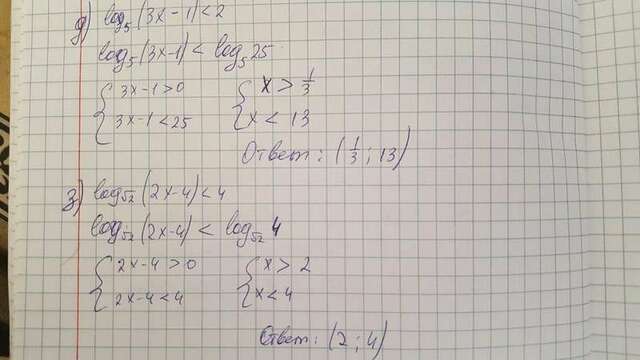 д) log₅(3x-1)<2
log₅(3x-1) < log₅25
{3x-1>0 {x > 1/3
{3x-1<25 {x < 13
Ответ: (1/3; 13)
з) log√2(2x-4)<4
log√2(2x-4) < log√2 4
{2x-4>0 {x > 2
{2x-4<4 {x<4
Ответ: (2; 4)